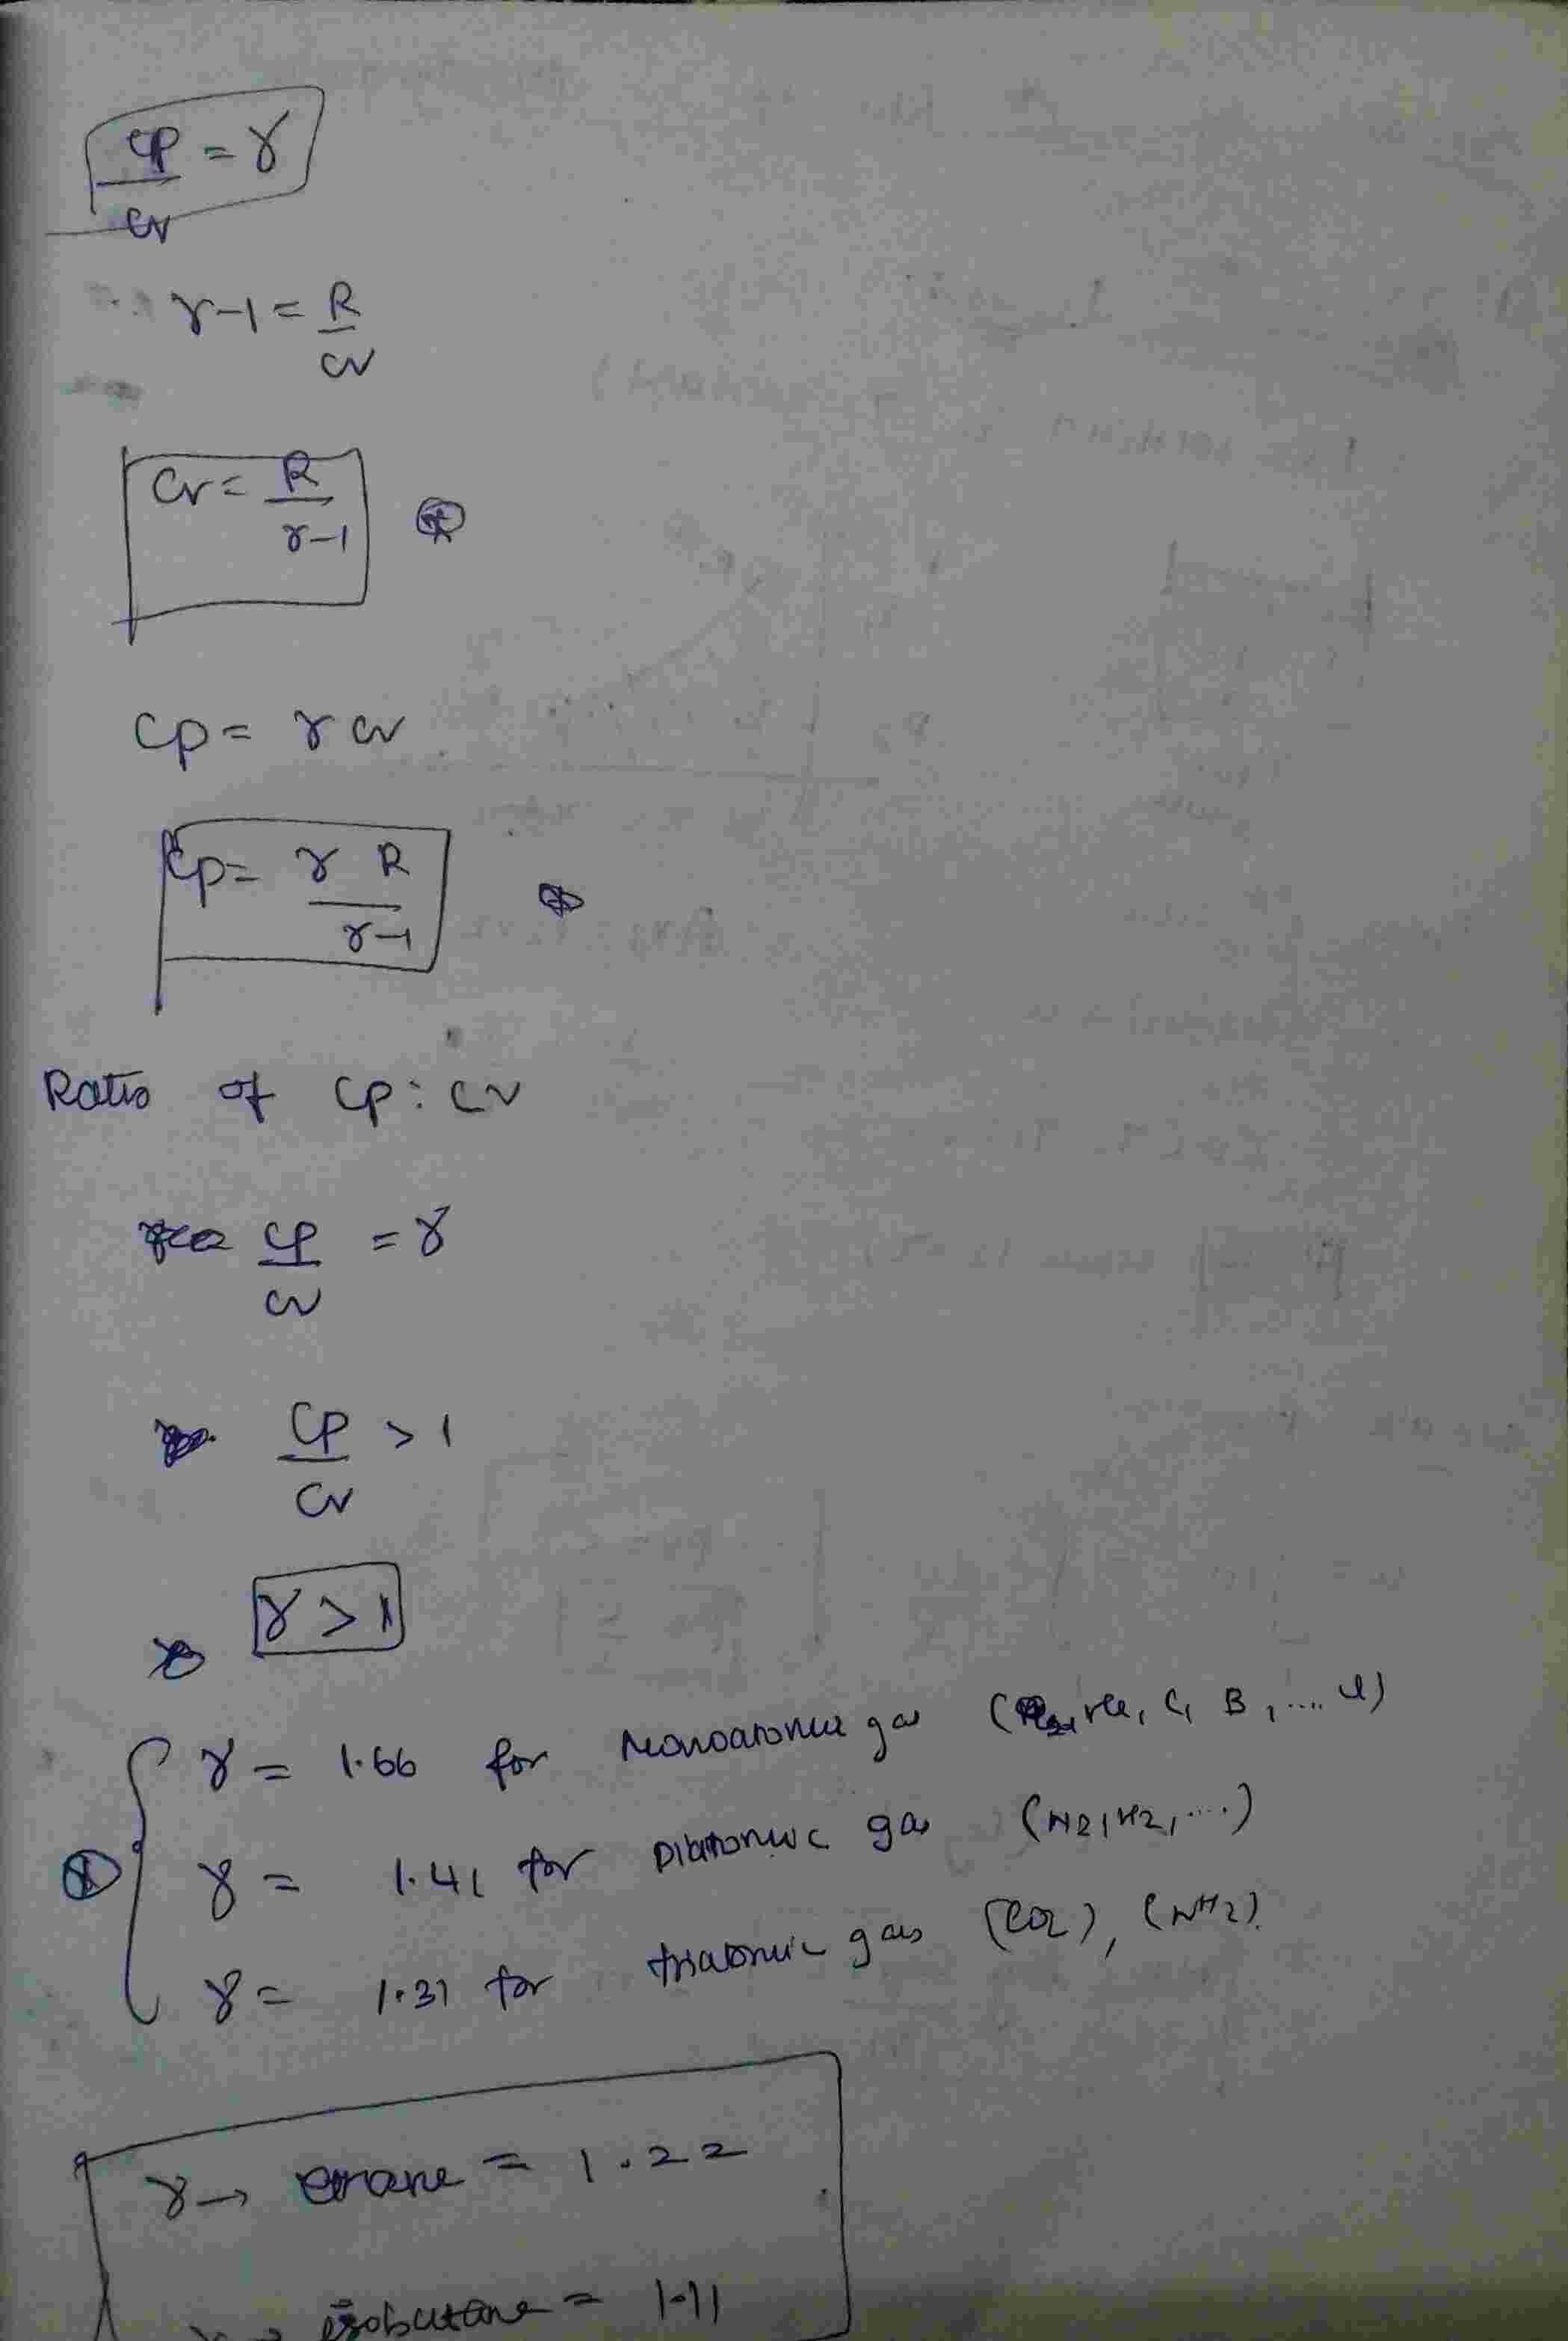 Cp/Cv = γ
γ-1 = R/Cv
Cv = R/γ-1
Cp = γ Cv
Cp = γ R/γ-1
Ratio of Cp : Cv
Cp/Cv = γ
Cp/Cv > 1
γ > 1
γ = 1.66 for Monoatomic gas (He, C, B, ....
γ = 1.41 for Diatomic gas (N2, H2, ....)
γ = 1.31 for triatomic gas (CO2), (NH2)
γ → Ethane = 1.22
isobutane = 1.11